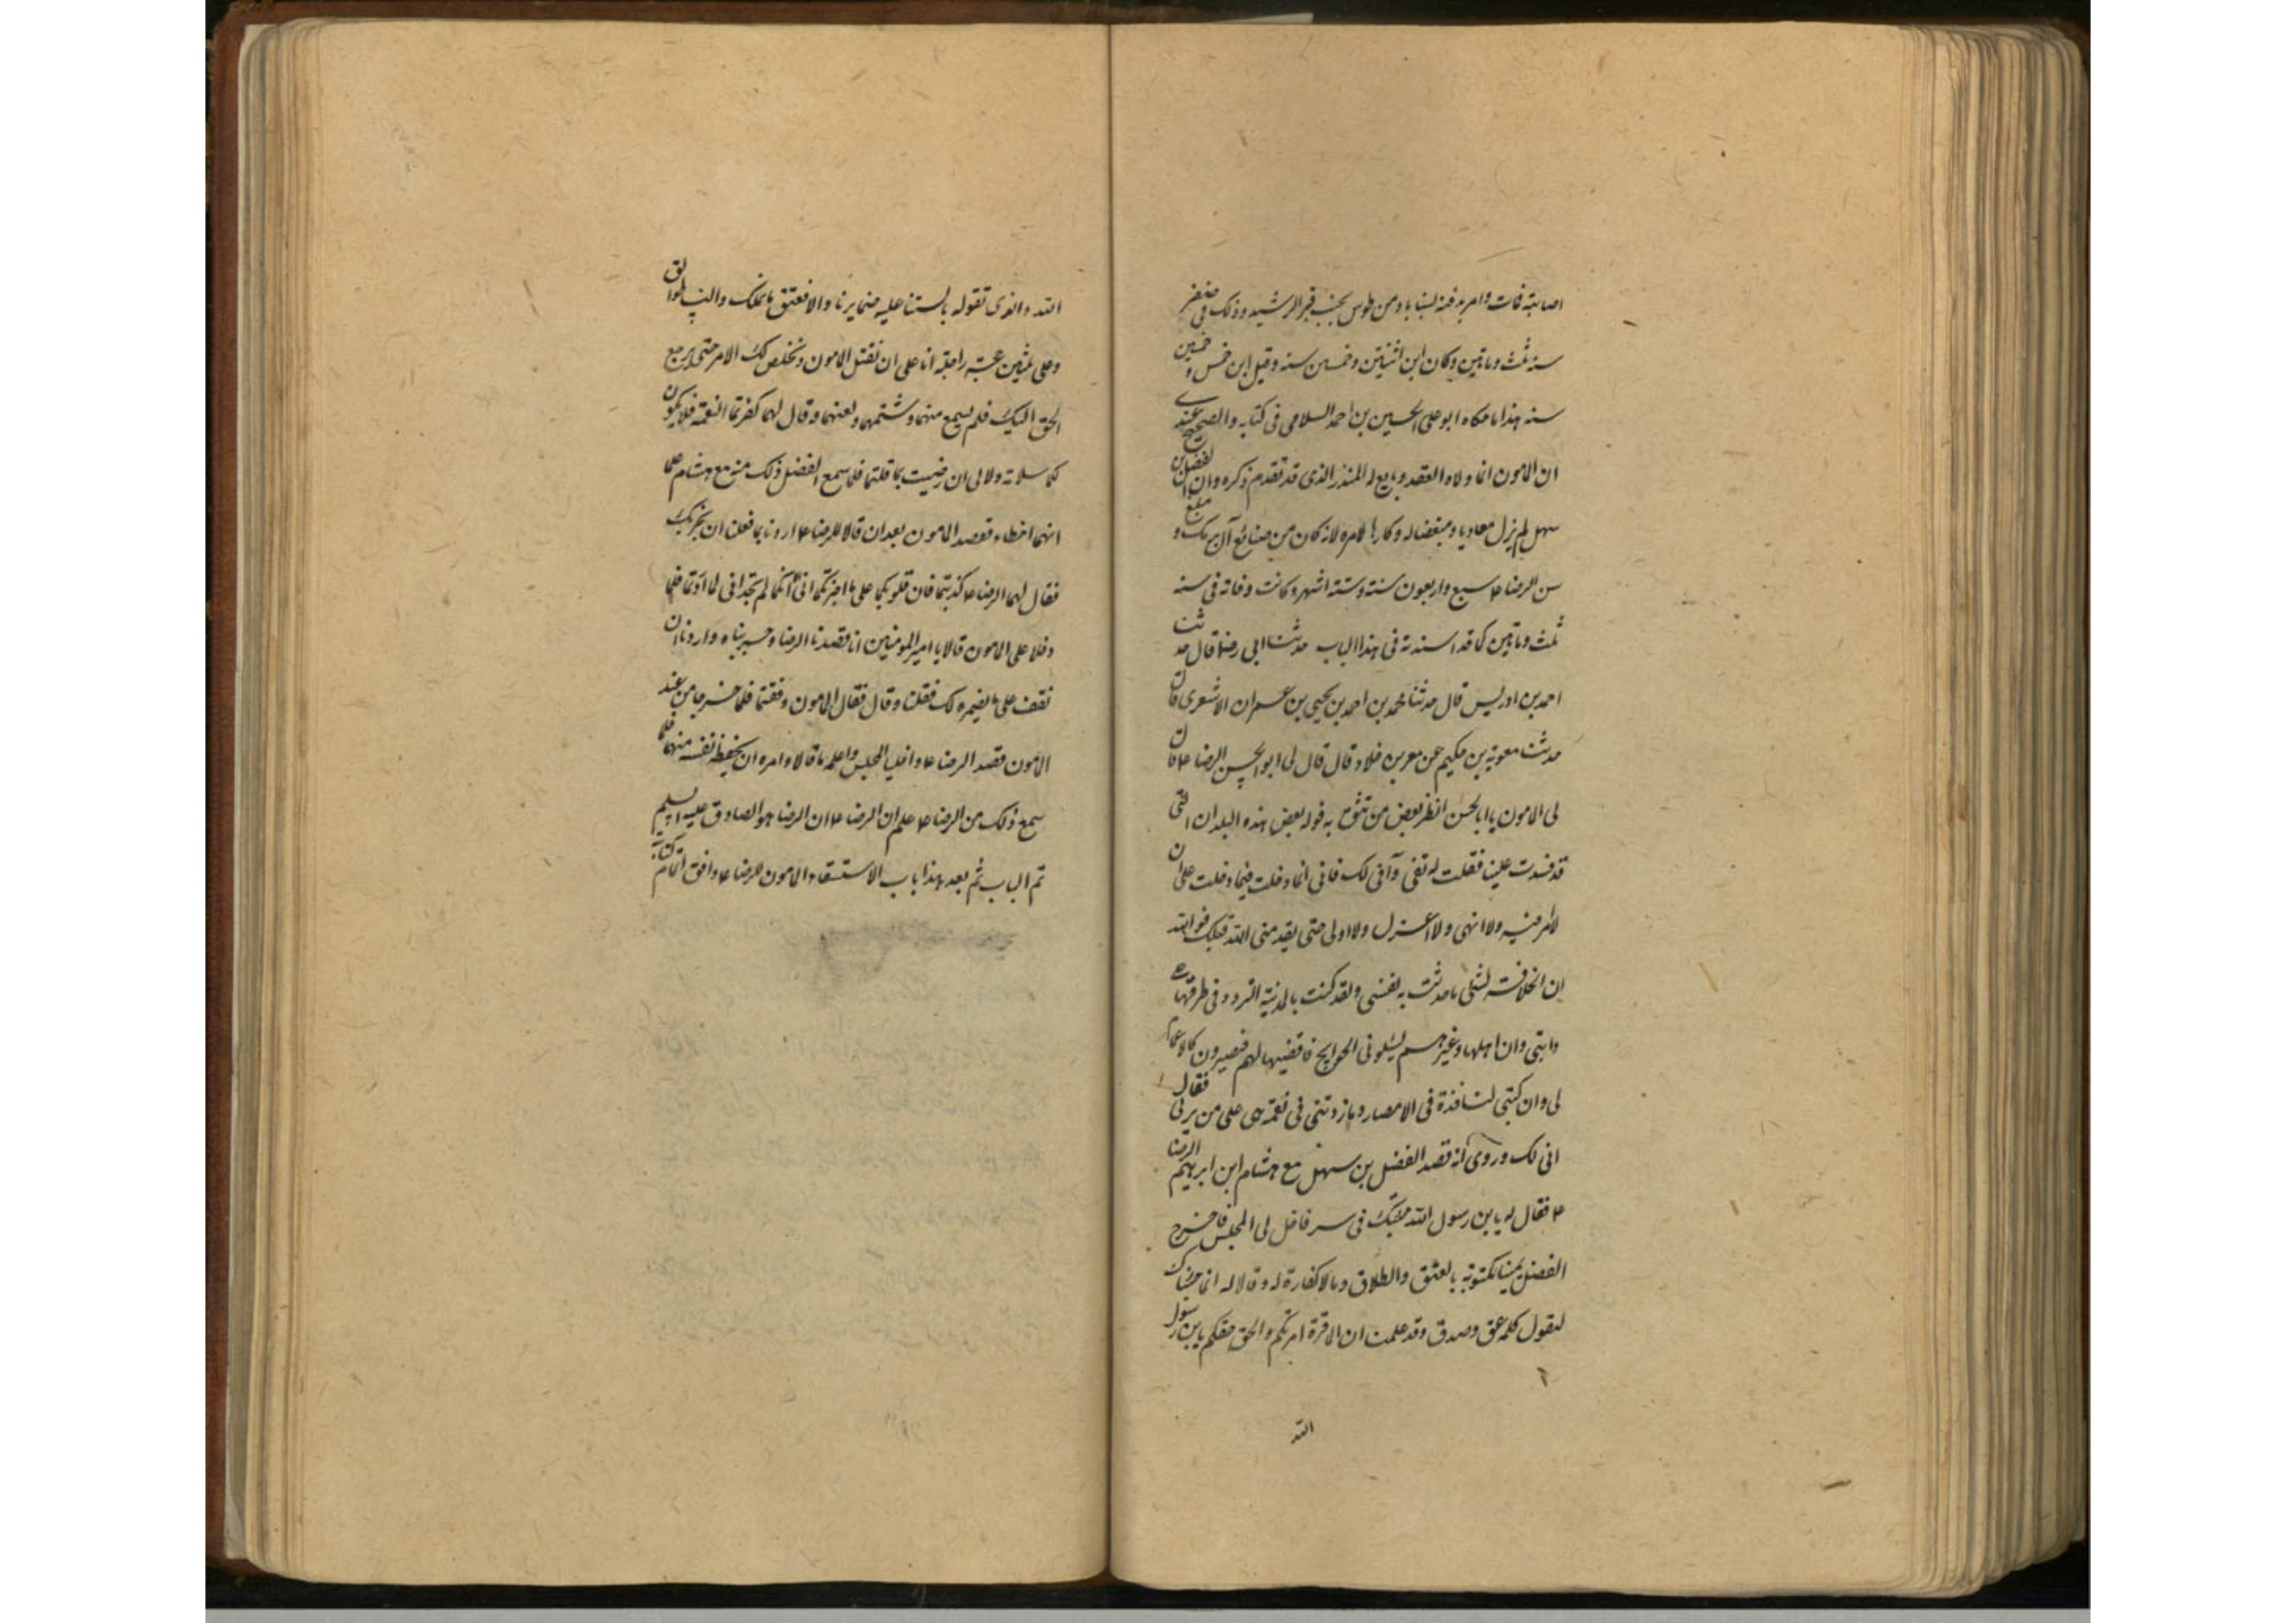 اصابته فمات وامر بدفنه بسناباد من طوس بجنب قبر الرشيد وذلك فى صفر
سنه ثلث ومأتين وكان ابن اثنتين وخمسين سنه وقيل ابن خمس وخمسين
سنه هذا ما حكاه ابو على الحسين بن احمد السلامى فى كتابه والصحيح عندى
ان المامون انما ولاه العقد وبايع له للنذر الذى قد تقدم ذكره وان الفضل بن
سهل لم يزل معاديا ومبغضا له وكارها لامره لانه كان من صنائع آل برمك و مبلغ
سن الرضا ع سبع واربعون سنة وستة اشهر وكانت وفاته فى سنه
ثلث ومأتين كما قد اسندته فى هذا الباب حدثنا ابى رض قال حدثنا
احمد بن ادريس قال حدثنا محمد بن احمد بن يحيى بن عمران الاشعرى قال
حدثنا معوية بن حكيم عن معمر بن خلاد قال قال لى ابو الحسن الرضا ع قال
لى المامون يا ابا الحسن انظر بعض من تثق به نوله بعض هذه البلدان التى
قد فسدت علينا فقلت له تفى وآفى لك فانى انما دخلت فيما دخلت على ان
لا امر فيه ولا انهى ولا اعزل ولا اولى حتى يقدمنى الله قبلك فوالله
ان الخلافة لشئ ما حدثت به نفسى ولقد كنت بالمدينة اتردد فى طرقها على
دابتى وان اهلها وغيرهم يسئلونى الحوايج فاقضيها لهم فيصيرون كالاعمام
لى وان كتبى لنافذة فى الامصار وما زدتنى فى نعمة هى على من ربى فقال
افى لك وروى انه قصد الفضل بن سهل مع هشام ابن ابرهيم الرضا
ع فقال له يابن رسول الله جئتك فى سر فاخل لى المجلس فاخرج
الفضل يمينا مكتوبة بالعتق والطلاق وما لا كفارة له وقالا له انما جئناك
لنقول كلمة حق وصدق وقد علمنا ان الامرة امرتكم والحق حقكم يابن رسول
الله
الله والذى نقوله بالستنا عليه ضمايرنا والا فعتق ما نملك والنساء طوالق
وعلى ثلثين حجة راجلة انا على ان نقتل المامون ونخلص لك الامر حتى يرجع
الحق اليك فلم يسمع منهما وشتمهما ولعنهما وقال لهما كفرتما النعمة فلا يكون
لكما سلامة ولا لى ان رضيت بما قلتما فلما سمع الفضل ذلك منه مع هشام علما
انهما اخطاء فقصد المامون بعد ان قالا للرضا ع اردنا بما فعلنا ان نجربك
فقال لهما الرضا ع كذبتما فان قلوبكما على ما اخبرتكما انى الا انكما لم تجدانى لما اردتما فلما
دخلا على المامون قالا يا امير المومنين انا قصدنا الرضا وجربناه واردنا ان
نقف على ما يضمره لك فقلنا وقال فقال المامون وفقتما فلما خرجا من عند
المامون قصد الرضا ع واخليا المجلس واعلمه ما قالا وامره ان يحفظ نفسه منهما فلما
سمع ذلك من الرضا ع علم ان الرضا ع ان الرضا هو الصادق عليه السليم
تم الباب ثم بعد هذا باب الاستسقاء المامون للرضا ع وافق اتمام كتابه